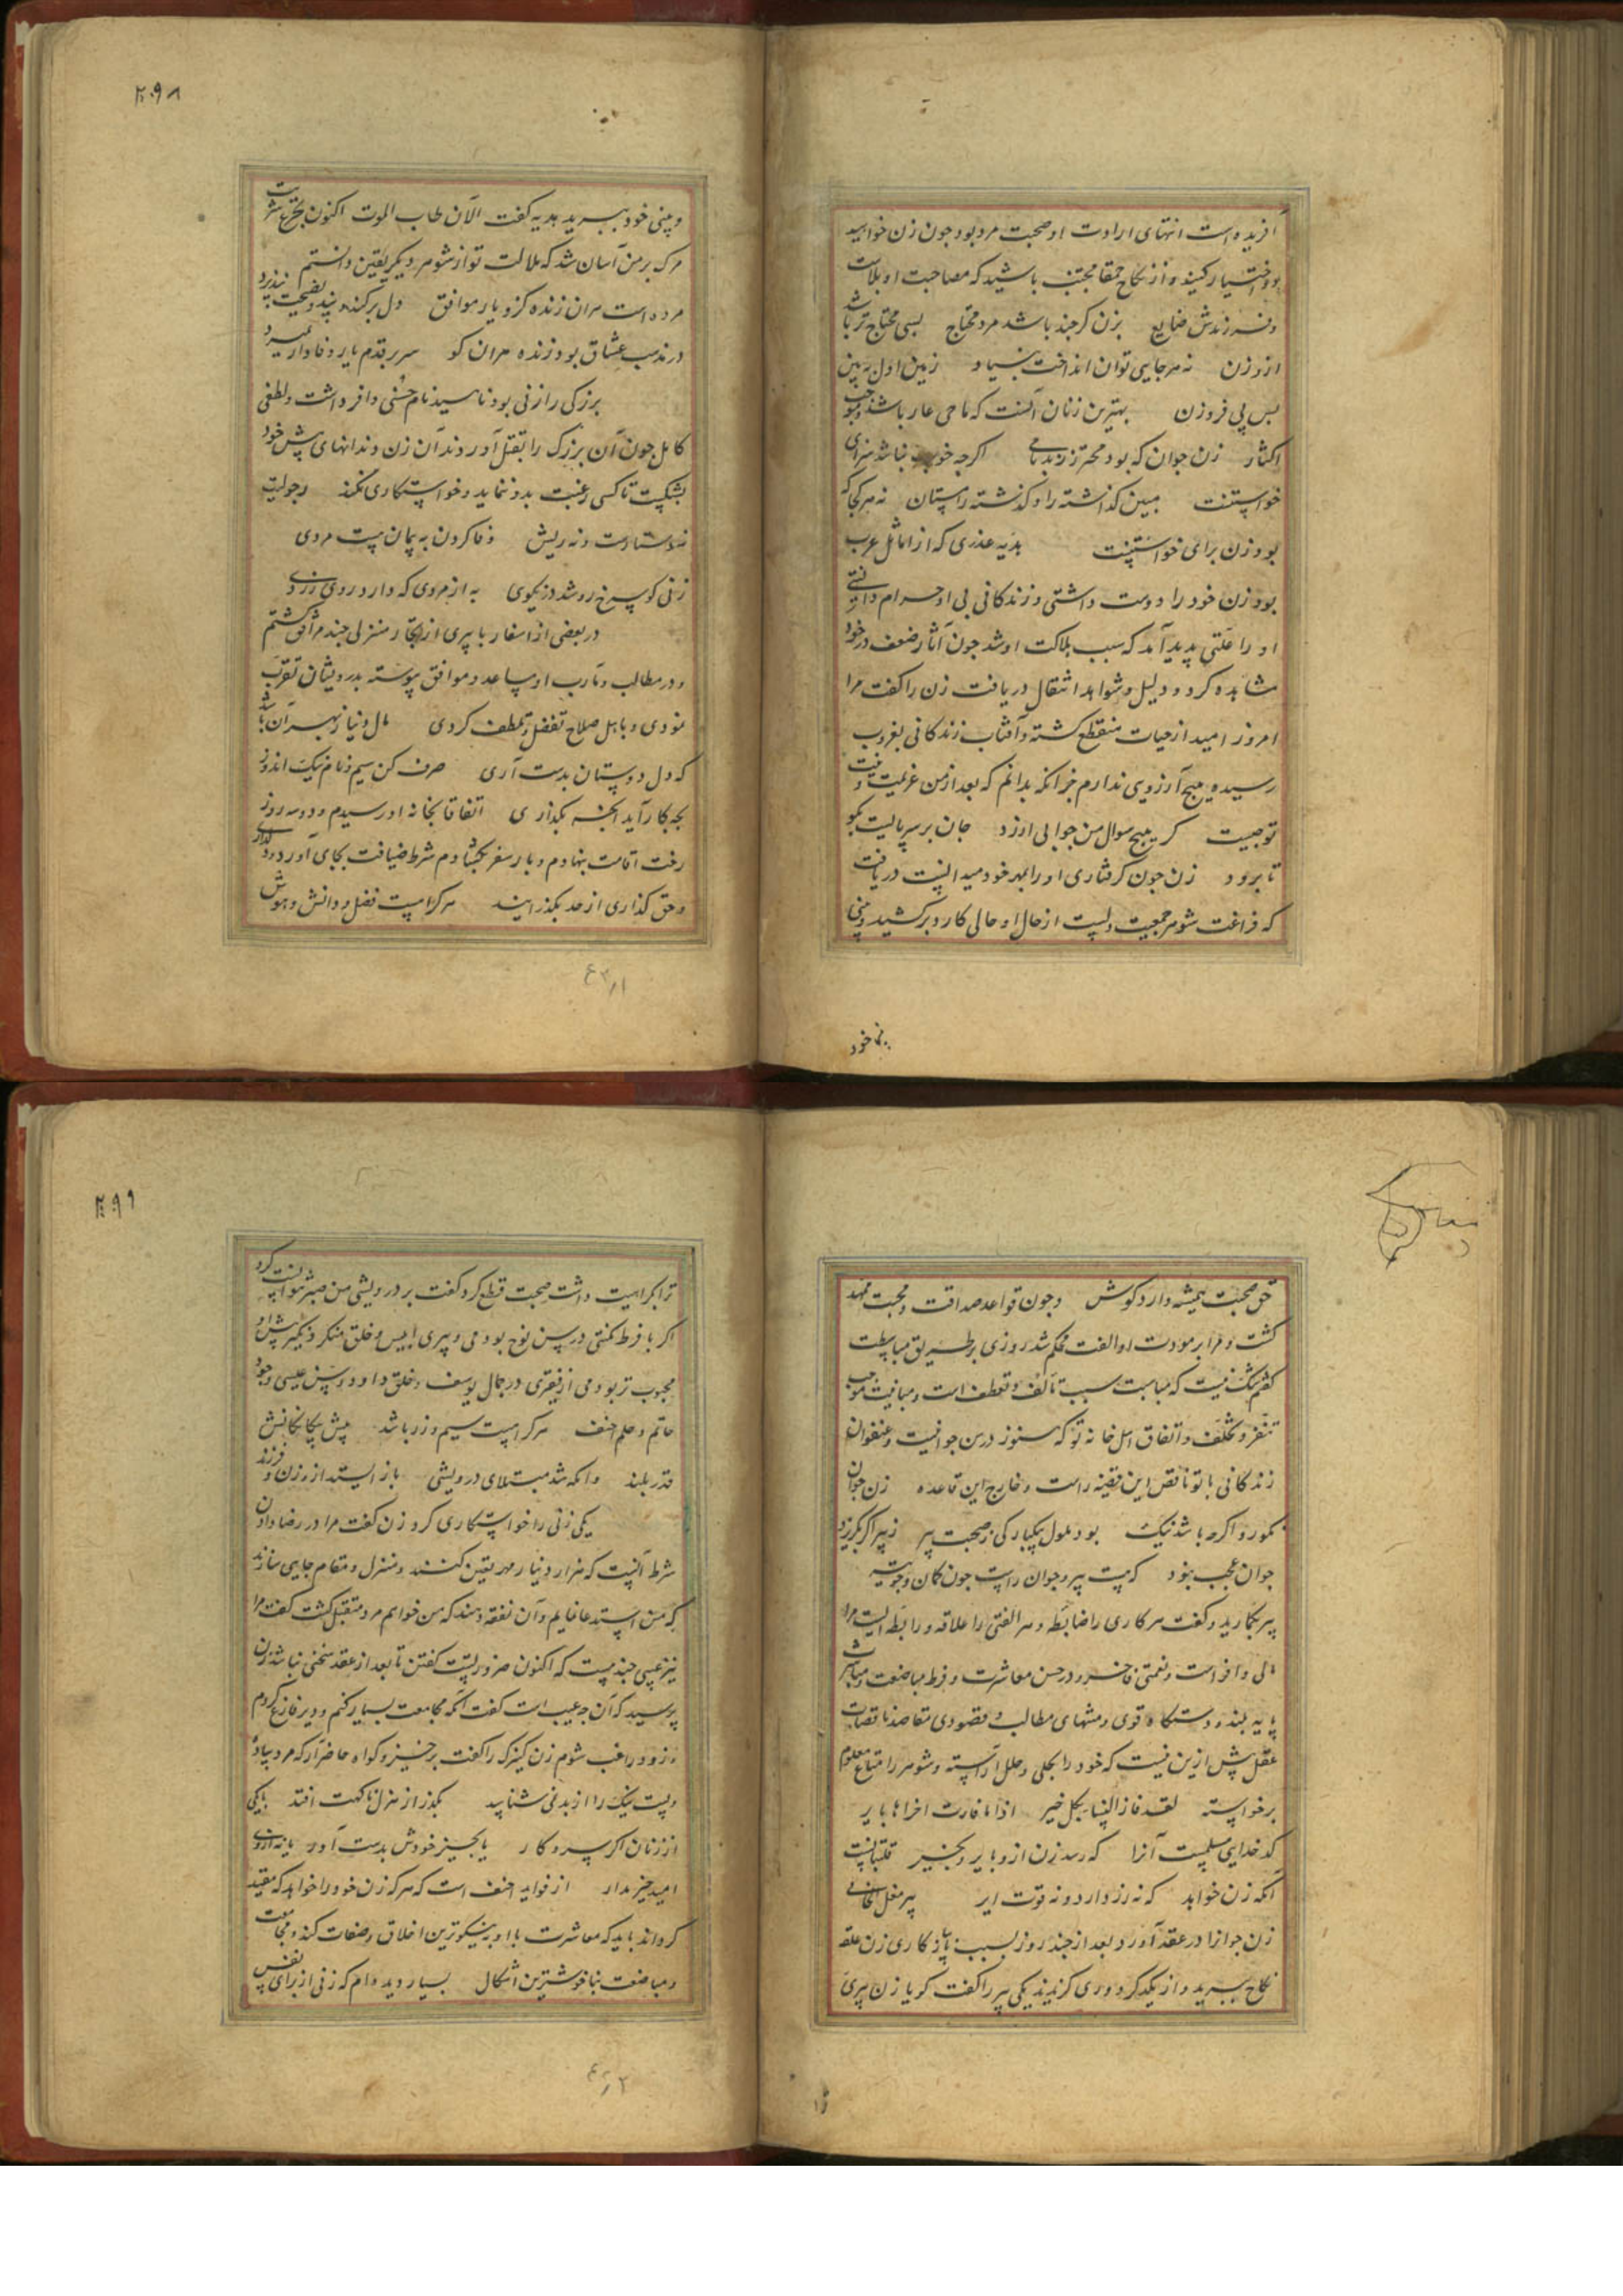 آفریده است انتهای ارادت او صحبت مرد بود چون زن خواهید
اختیار کنید و از نکاح حمقا مجتنب باشید که مصاحبت او بلاست
و فرزندش ضایع بزن کرچند باشد مرد محتاج بسی محتاج تر باشد
از و زن نه هر جایی توان انداخت بنیاد زمین اول ببین
پس پی فرو زن بهترین زنان آنست که ماحی عار باشد
زن جوان که بود محترز ز بدنامی اکرچه خوب نباشد سزای
خواستنست مبین کذاشته را و کذشته را مستان نه هر کجا که
بود زن برای خواستنست بدیه عذری که از اماثل عرب
بود زن خود را دوست داشتی و زندکانی بی او حرام دانستی
او را علتی پدید آمد که سبب هلاکت او شد چون آثار ضعف در خود
مشاهده کرد و دلیل و شواهد انتقال دریافت زن را کفت مرا
امروز امید از حیات منقطع کشته و آفتاب زندکانی بغروب
رسیده هیچ آرزویی ندارم جز آنکه بدانم که بعد از من عزیمت و نیت
تو چیست کر هیچ سوال من جوابی ارزد جان بر سر پاست بکو
تا برود زن چون کرفتاری او را بمهر خود میدانست دریافت
که فراغت شوهر جمعیت دلست از حال او حالی کارد برکشید و بینی
بینی خود
۲۹۸
و بینی خود ببرید بدیه کفت الآن طاب الموت اکنون تجرع شربت
مرک بر من آسان شد که ملالت تو از شوهر دیکر یقین دانستم
مرده است هر آن زنده کزو یار موافق دل برکند و پند و نصیحت نپذیرد
در مذهب عشاق بود زنده هر آن کو سر بر قدم یار وفادار بمیرد
بزرکی را زنی بود ناهید نام حسنی وافر داشت و لطفی
کامل چون آن بزرک را بقتل آوردند آن زن دندانهای پیش خود
بشکست تا کسی رغبت بدو ننماید و خواستکاری نکند رجولیت
نه دستارست و نه ریش وفا کردن به پیمان هست مردی
زنی کو سرخ رو شد در نکویی به از مردی که دارد روی زردی
در بعضی از اسفار با پیری از تجار منزلی چند مرافق کشتم
و در مطالب و مآرب او مساعد و موافق پیوسته بدرویشان تقرب
نمودی و با اهل صلاح تفضل و تلطف کردی مال دنیا ز بهر آن باشد
که دل دوستان بدست آری صرف کن سیم و نام نیک اندوز
بچه کار آید ار بکذاری اتفاقا بخانه او رسیدم و دو سه روز
رخت اقامت بنهادم و بار سفر بکشادم شرط ضیافت بجای آورد
و حق کذاری از حد بکذرانید هر کرا هست فضل و دانش و هوش
حق صحبت همیشه دارد کوش و چون قواعد صداقت و محبت ممهد
کشت و مرا بر مودت او الفت محکم شد روزی بر طریق مباسطت
کفتم شک نیست که مناسبت سبب تآلف و تعطف است و مباینت موجب
تنفر و تخلف و اتفاق اهل خانه تو که هنوز در سن جوانیست و عنفوان
زندکانی با تو ناقض این قضیه است و خارج این قاعده زن جوان
نکورو اکرچه باشد نیک بود ملول بیکبارکی ز صحبت پیر ز پیر اکر بکریزد
جوان عجب نبود که هست پیر و جوان راست چون کمان و چو تیر
پیر بکرید و کفت هر کاری را ضابطه و هر الفتی را علاقه و رابطه ایست مرا
مالی وافر است و نعمتی فاخر و در حسن معاشرت و فرط مباضعت و مباشرت
پایه بلند و دستکاه قوی و منتهای مطالب و قصودی مقاصد ناقصات
عقل بیش ازین نیست که خود را بحلی و حلل آراسته و شوهر را متاع معلوم
برخواسته لقد فاز النسا بکل خیر اذا ما فارت اخراها بایر
کدخدایی مسلمست آنرا که رسد زن ازو بایر و بخیر قلتبانست
آنکه زن خواهد که نه زر دارد و نه قوت ایر پیر مغل
زن جوانرا در عقد آورد بعد از چند روز بسبب زن علقه
نکاح ببرید و از یکدکر دوری کزیدند یکی پیر را کفت کویا زن پیری
۲۹۹
ترا کراهیت داشت صحبت قطع کرد کفت بر درویشی من صبر نتوانست کرد
اکر با فرط مکنتی در سن نوح بودمی و پیری ابلیس و خلق منکر و نکیر پیش او
محبوب تر بودمی از فقیری در جمال یوسف و خلق داود و سن عیسی و جود
حاتم و حلم احنف هر کرا هست سیم و زر باشد پیش بیکانکانش
قدر بلند وانکه شد مبتلای درویشی باز ایستد از زن و فرزند
یکی زنی را خواستکاری کرد زن کفت مرا در رضا دادن
شرط آنست که هزار دینار مهر تعین کنند و منزل و مقام جایی سازند
که من استدعا نمایم و آن نفقه دهند که من خواهم مرد متقبل کشت کفت مرا
نیز عیبی چند هست که اکنون ضرورتست کفتن تا بعد از عقد سخنی نباشد زن
پرسید که آن چه عیب است کفت آنکه مجامعت بسیار کنم و دیر فارغ کردم
و زود راغب شوم زن کنیزک را کفت برخیز و کواه حاضر آر که مرد ساده
ایست نیک را از بد نمی شناسد بکذر از منزل ناکهت افتد با یکی
از زنان اکر سر و کار یا بچیز خودش بدست آور یا نه از وی
امید چیز مدار از فواید احنف است که هر که زن خود را خواهد که مقید
کرداند باید که معاشرت با او به نیکوترین اخلاق و صفات کند و مجامعت
و مباضعت بناخوشترین اشکال بسیار دیده ام که زنی از برای نفس